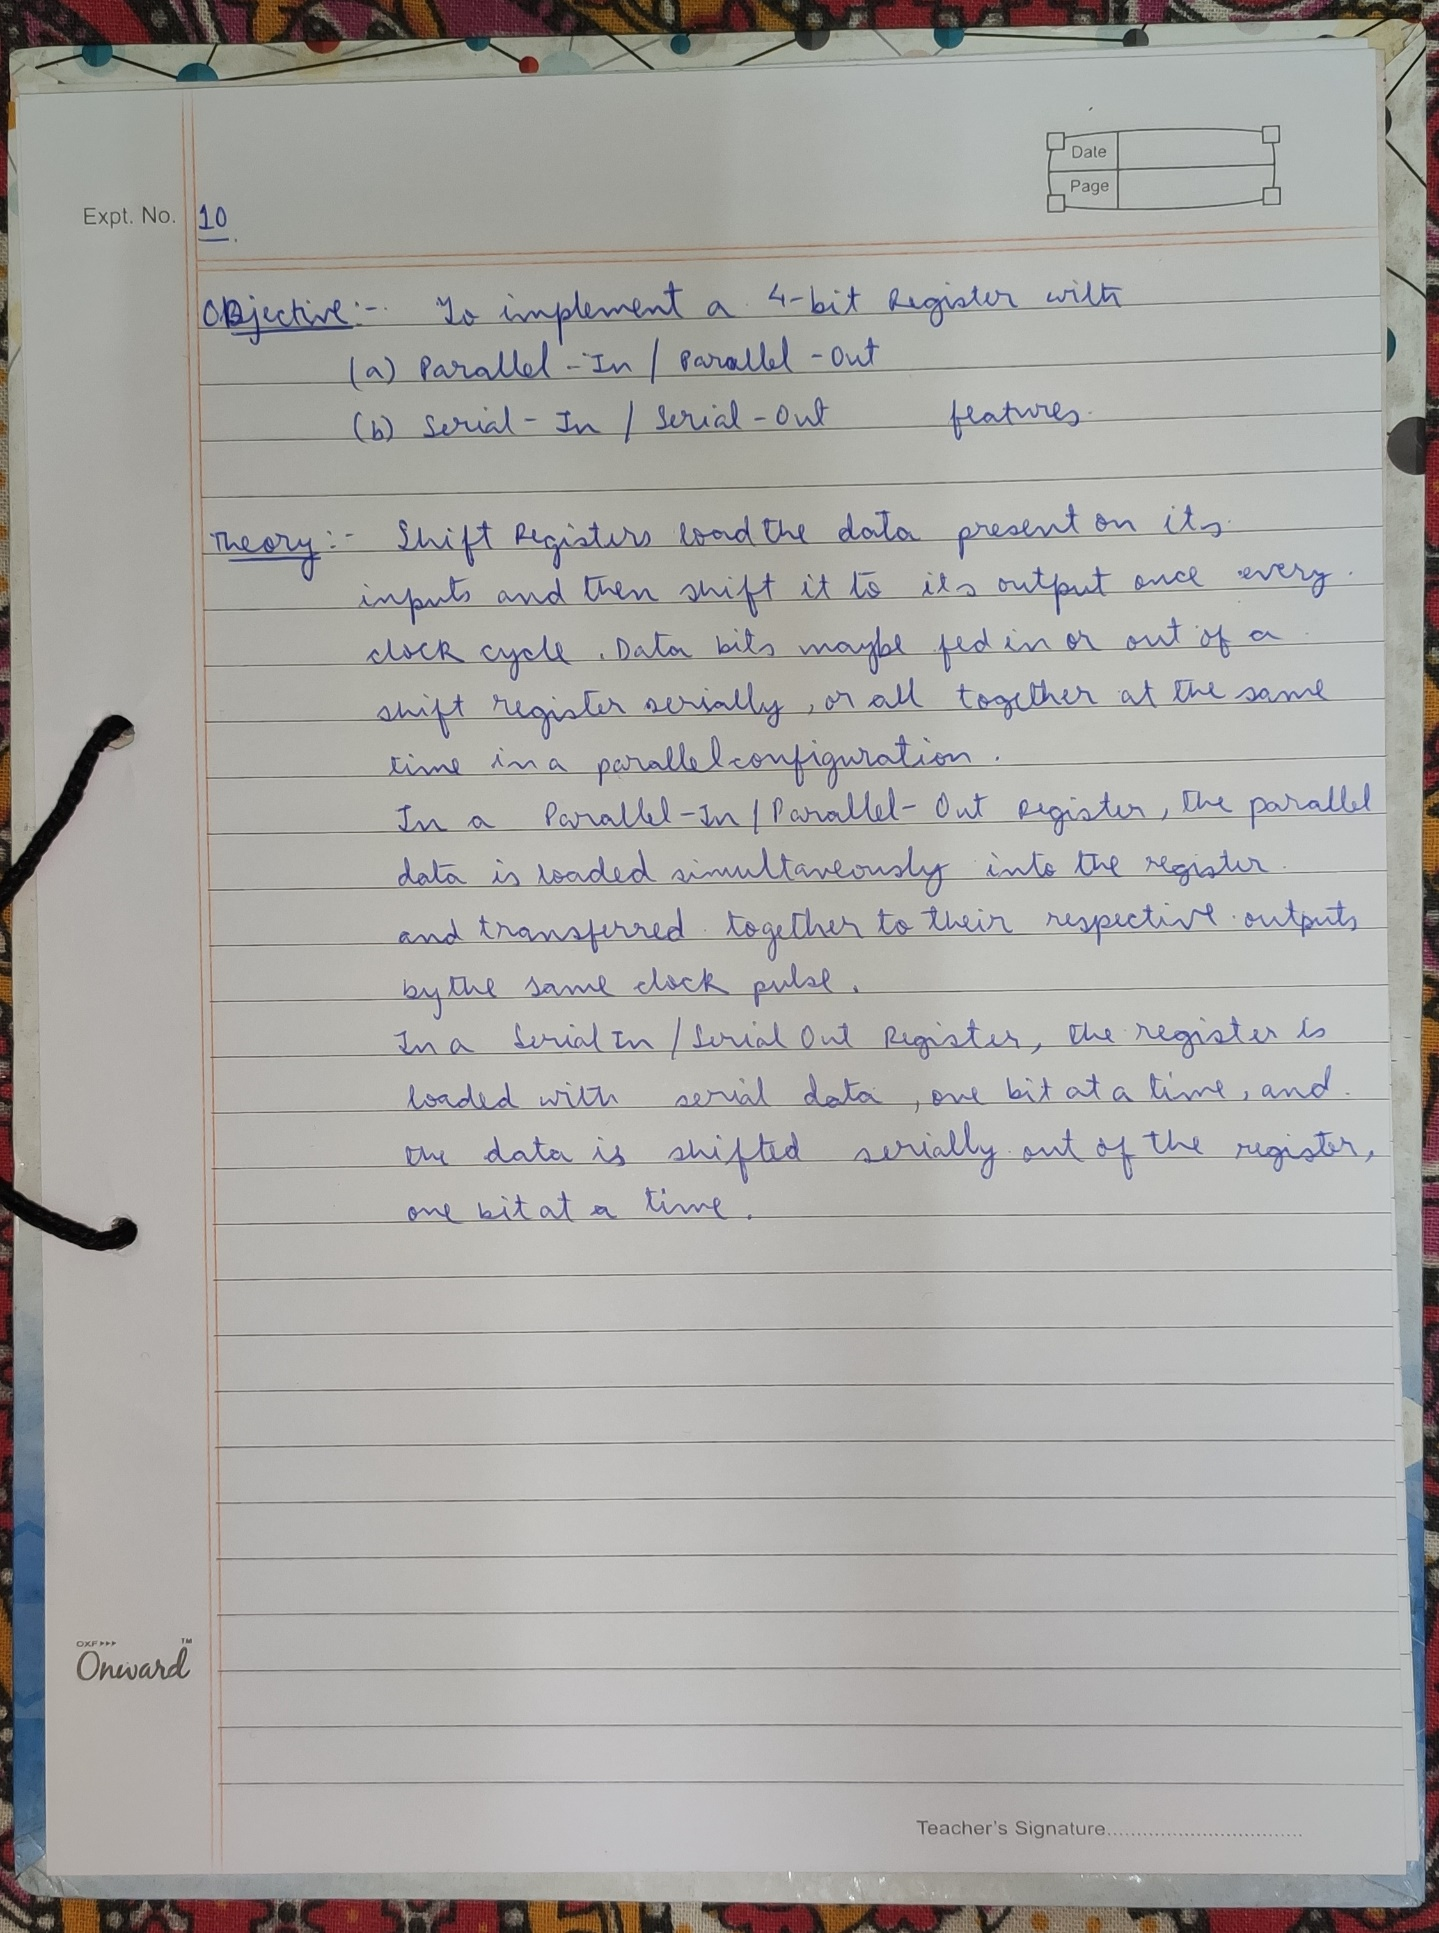 Date
Page
Expt. No. 10.
Objective :- To implement a 4-bit Register with
(a) Parallel-In / Parallel-Out
(b) Serial-In / Serial-Out features.
Theory :- Shift Registers load the data present on its
inputs and then shift it to its output once every
clock cycle. Data bits maybe fed in or out of a
shift register serially, or all together at the same
time in a parallel configuration.
In a Parallel-In / Parallel-Out Register, the parallel
data is loaded simultaneously into the register
and transferred together to their respective outputs
by the same clock pulse.
In a Serial In / Serial Out Register, the register is
loaded with serial data, one bit at a time, and
the data is shifted serially out of the register,
one bit at a time.
OXF
Onward™
Teacher's Signature.................................